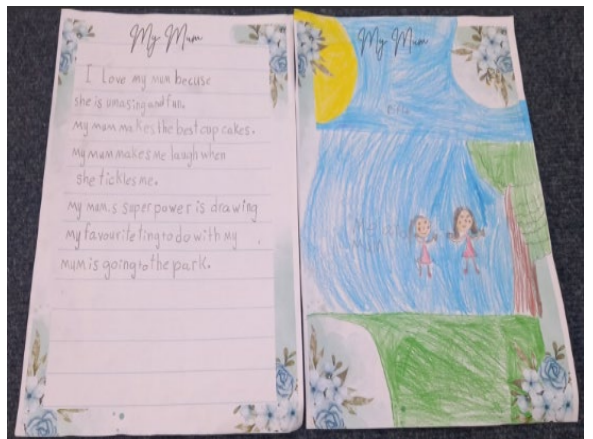 My Mum
I love my mum becuse
she is umasing and fun.
my mum makes the best cup cakes.
my mum makes me laugh when
she tickles me.
my mum.s super power is drawing
my favourite ting to do with my
mum is going to the park.
My Mum
Me and
mum